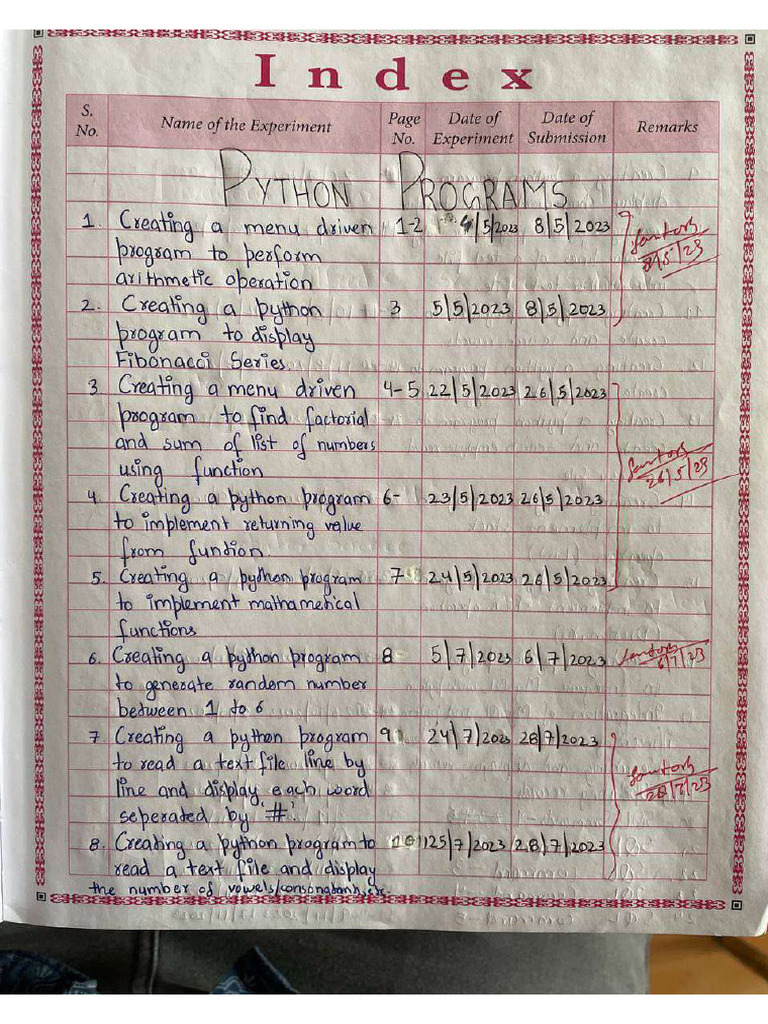 Index
S. No. Name of the Experiment Page No. Date of Experiment Date of Submission Remarks
PYTHON PROGRAMS
1. Creating a menu driven 1-2 4/5/2023 8/5/2023
program to perform 8/5/23
arithmetic operation
2. Creating a python 3 5/5/2023 8/5/2023
program to display
Fibonacci Series
3. Creating a menu driven 4-5 22/5/2023 26/5/2023
program to find factorial
and sum of list of numbers
using function 26/5/23
4. Creating a python program 6- 23/5/2023 26/5/2023
to implement returning value
from funtion.
5. Creating a python program 7 24/5/2023 26/5/2023
to implement mathamehical
functions
6. Creating a python program 8 5/7/2023 6/7/2023 6/7/23
to generate random number
between 1 to 6
7. Creating a python program 9 24/7/2023 28/7/2023
to read a text file line by
line and display each word 28/7/23
seperated by '#'.
8. Creating a python program to 25/7/2023 28/7/2023
read a text file and display
the number of vowels/